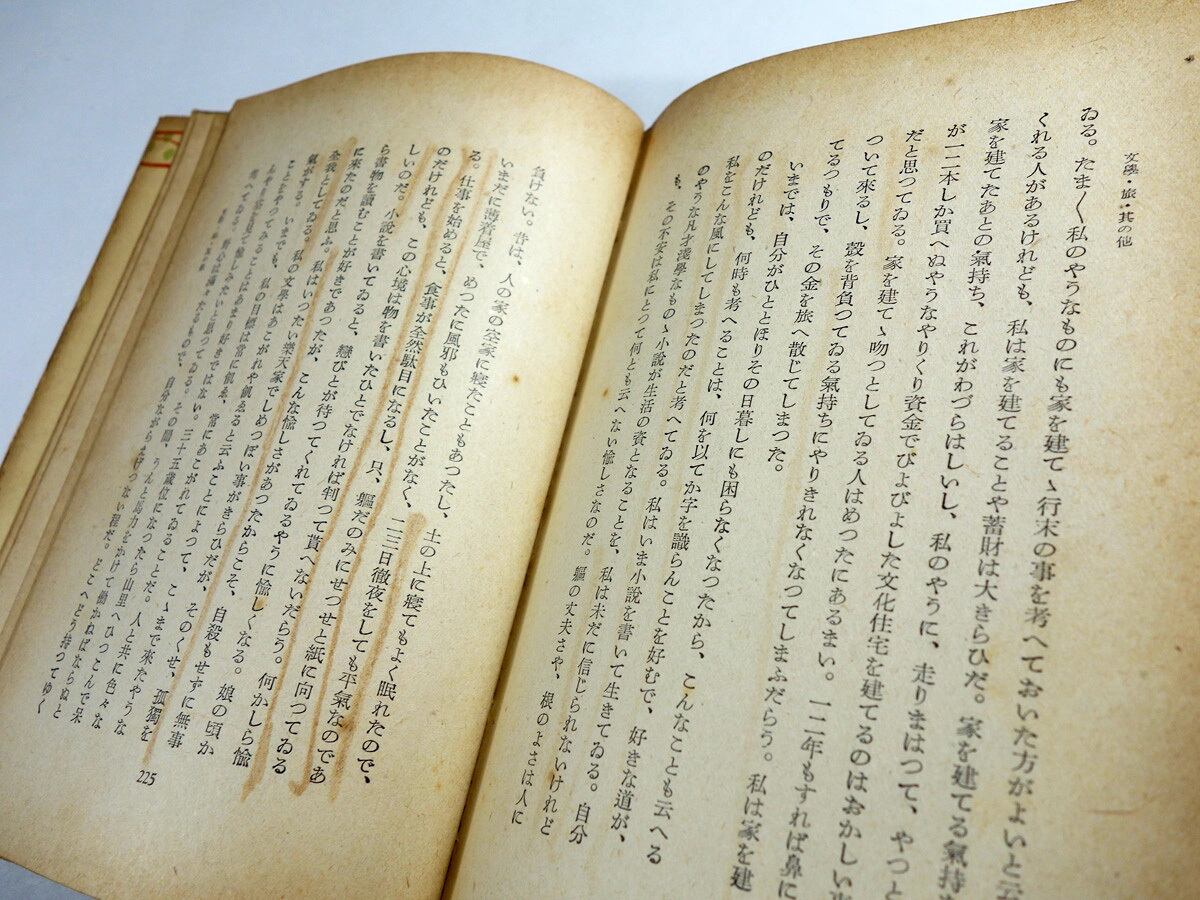 文學・旅・其の他
ゐる。たま〱私のやうなものにも家を建てゝ行末の事を考へておいた方がよいと云
くれる人があるけれども、私は家を建てることや蓄財は大きらひだ。家を建てる氣持
家を建てたあとの氣持ち、これがわづらはしいし、私のやうに、走りまはつて、やつと
が一二本しか買へぬやうなやりくり資金でぴよぴよした文化住宅を建てるのはおかしい
だと思つてゐる。家を建てゝ吻つとしてゐる人はめつたにあるまい。一二年もすれば鼻に
ついて來るし、殼を背負つてゐる氣持ちにやりきれなくなつてしまふだらう。私は家を建
てるつもりで、その金を旅へ散じてしまつた。
いまでは、自分がひととほりその日暮しにも困らなくなつたから、こんなことも云へる
のだけれども、何時も考へることは、何を以てか字を識らんことを好むで、好きな道が、
私をこんな風にしてしまつたのだと考へてゐる。私はいま小說を書いて生きてゐる。自分
のやうな凡才淺學なものゝ小說が生活の資となることを、私は未だに信じられないけれど
も、その不安は私にとつて何とも云へない愉しさなのだ。軀の丈夫さや、根のよさは人に
負けない。昔は、人の家の空家に寢たこともあつたし、土の上に寢てもよく眠れたので、
いまだに薄着屋で、めつたに風邪もひいたことがなく、二三日徹夜をしても平氣なのであ
る。仕事を始めると、食事が全然駄目になるし、只、軀だのみにせつせと紙に向つてゐる
のだけれども、この心境は物を書いたひとでなければ判つて貰へないだらう。何かしら愉
しいのだ。小說を書いてゐると、戀びとが待つてくれてゐるやうに愉しくなる。娘の頃か
ら書物を讀むことが好きであつたが、こんな愉しさがあつたからこそ、自殺もせずに無事
に來たのだと思ふ。私はいつたい樂天家でしめつぽい事がきらひだが、そのくせ、孤獨を
全我としてゐる。私の文學はあこがれや飢ゑると云ふことによつて、こゝまで來たやうな
氣がする。いまでも、私の目標は常に飢ゑ、常にあこがれてゐることだ。人と共に色々な
ことをやつてみる
225